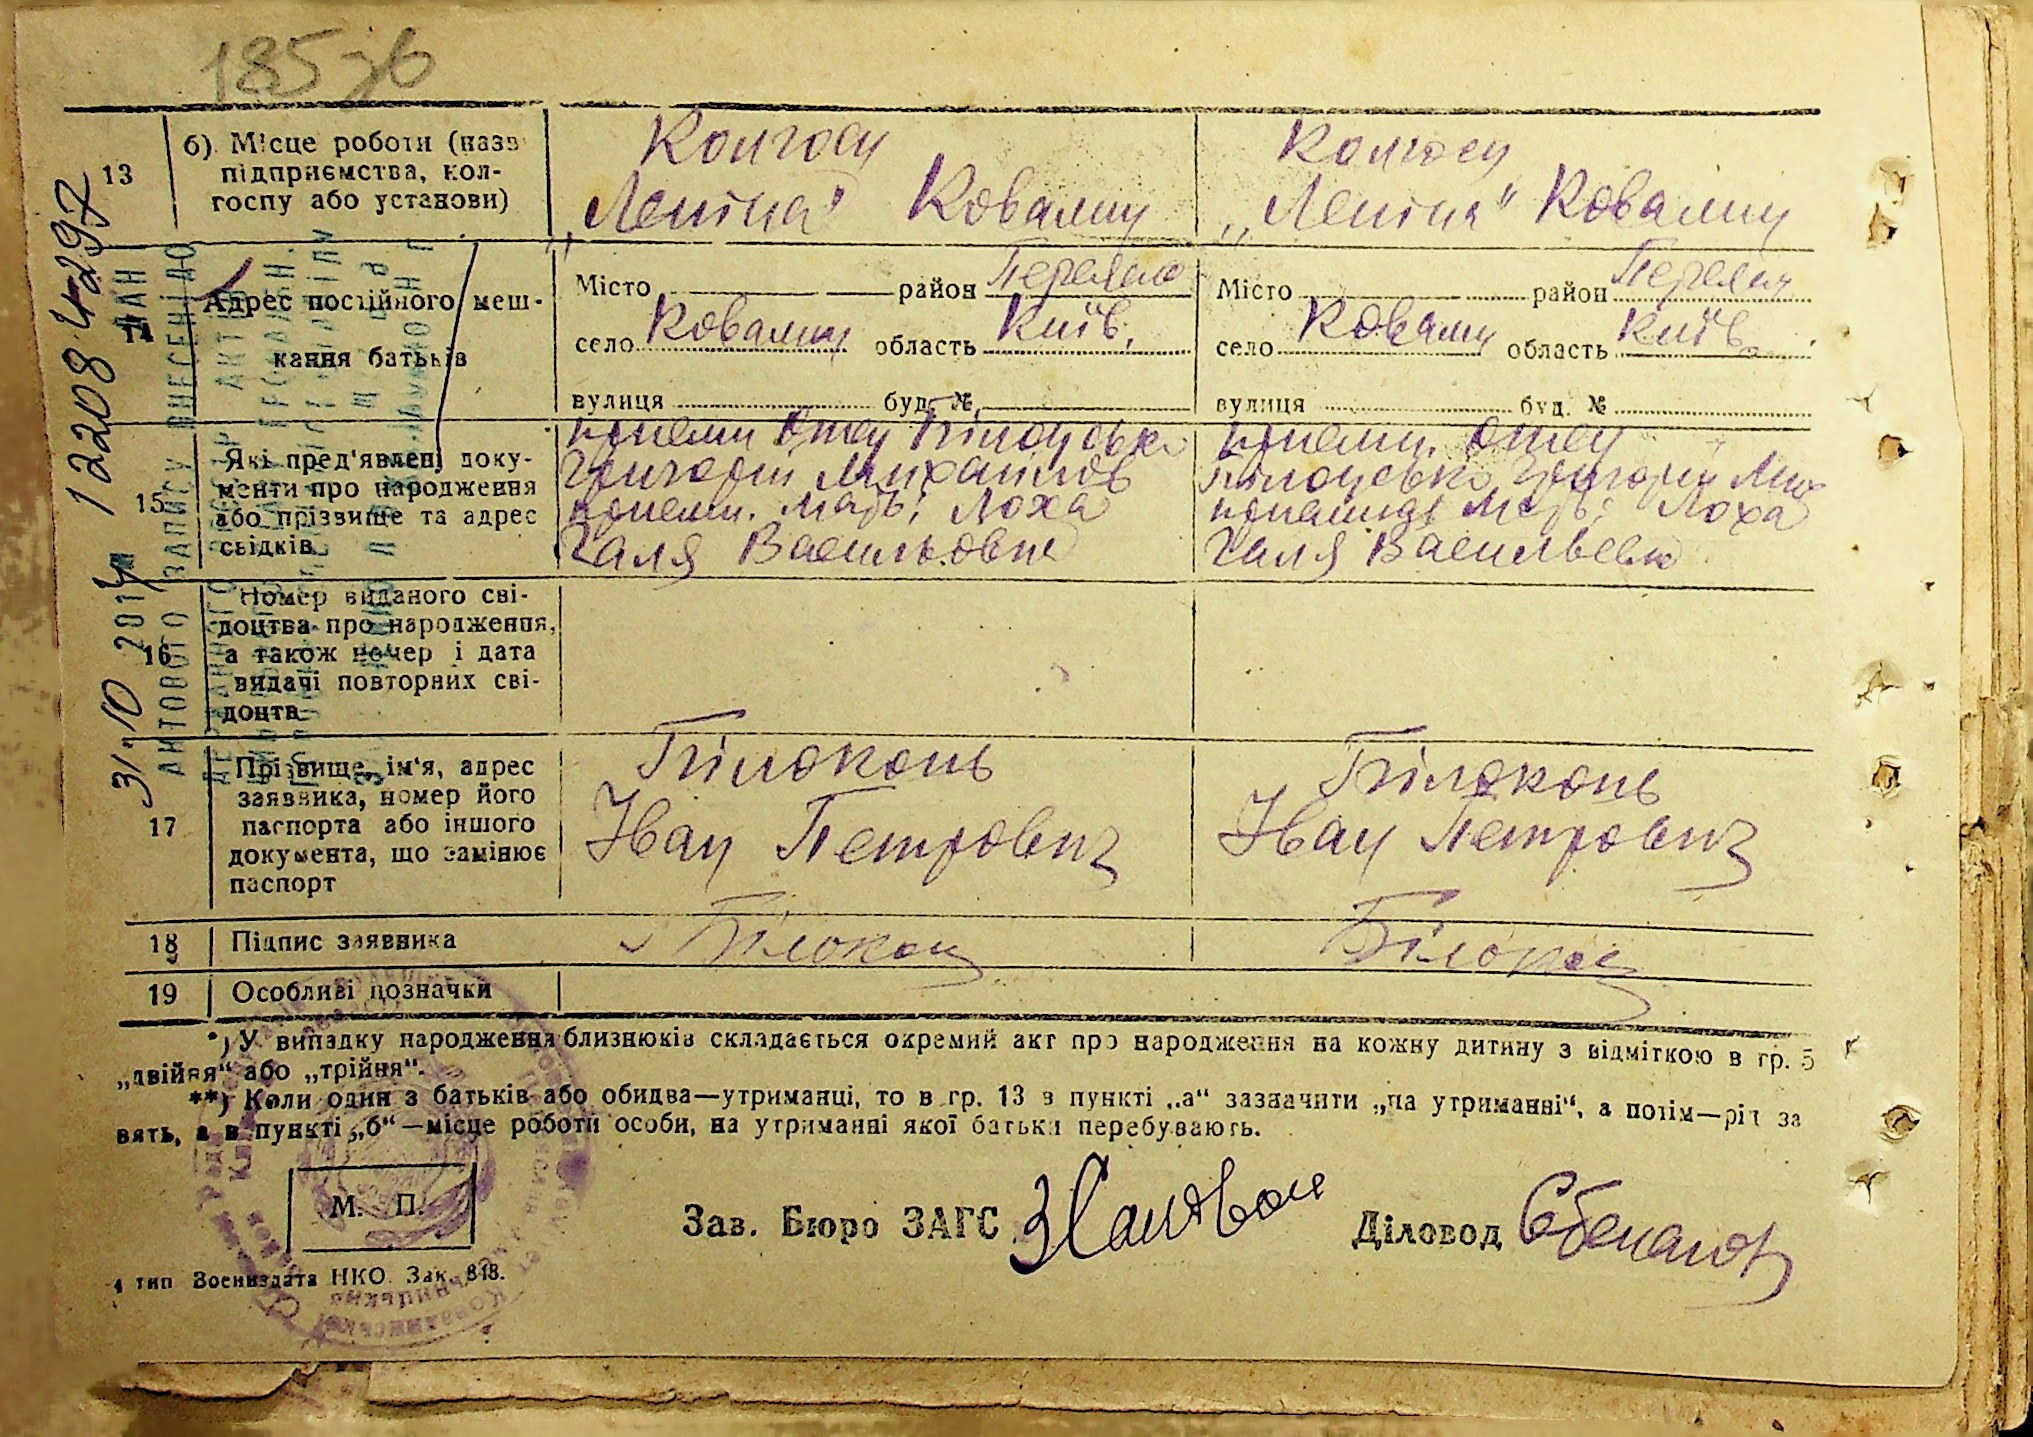 185 зв
13
б) Місце роботи (назв
підприємства, кол-
госпу або установи)
Колгосп
„Леніна" Ковалин
Колгосп
„Леніна" Ковалин
14
Адрес постійного меш-
кання батьків
Місто район Переясл
село Ковалин область Київ.
вулиця буд. №
Місто район Переясл
село Ковалин область Київ.
вулиця буд. №
15
Які пред'явлені доку-
менти про народження
або прізвище та адрес
свідків
Григорій Михайлов
Лоха
Галя Васильовна
Григорій Мих
Лоха
Галя Васильевна
16
Номер виданого сві-
доцтва про народження,
а також номер і дата
видачі повторних сві-
доцтв
17
Прізвище, ім'я, адрес
заявника, номер його
паспорта або іншого
документа, що замінює
паспорт
Білоконь
Іван Петрович
Білоконь
Іван Петрович
18
Підпис заявника
Білокон
Білокон
19
Особливі позначки
*) У випадку народження близнюків складається окремий акт про народження на кожну дитину з відміткою в гр. 5
„двійня" або „трійня".
**) Коли один з батьків або обидва—утриманці, то в гр. 13 в пункті „а" зазначити „на утриманні", а потім—рід за
нять, а в пункті „б"—місце роботи особи, на утриманні якої батьки перебувають.
М. П.
Зав. Бюро ЗАГС
Діловод
4 тип Воениздата НКО. Зак. 848.
31.10 2017
12208 4297
АКТОВОГО ЗАПИСУ ВНЕСЕНІ ДО